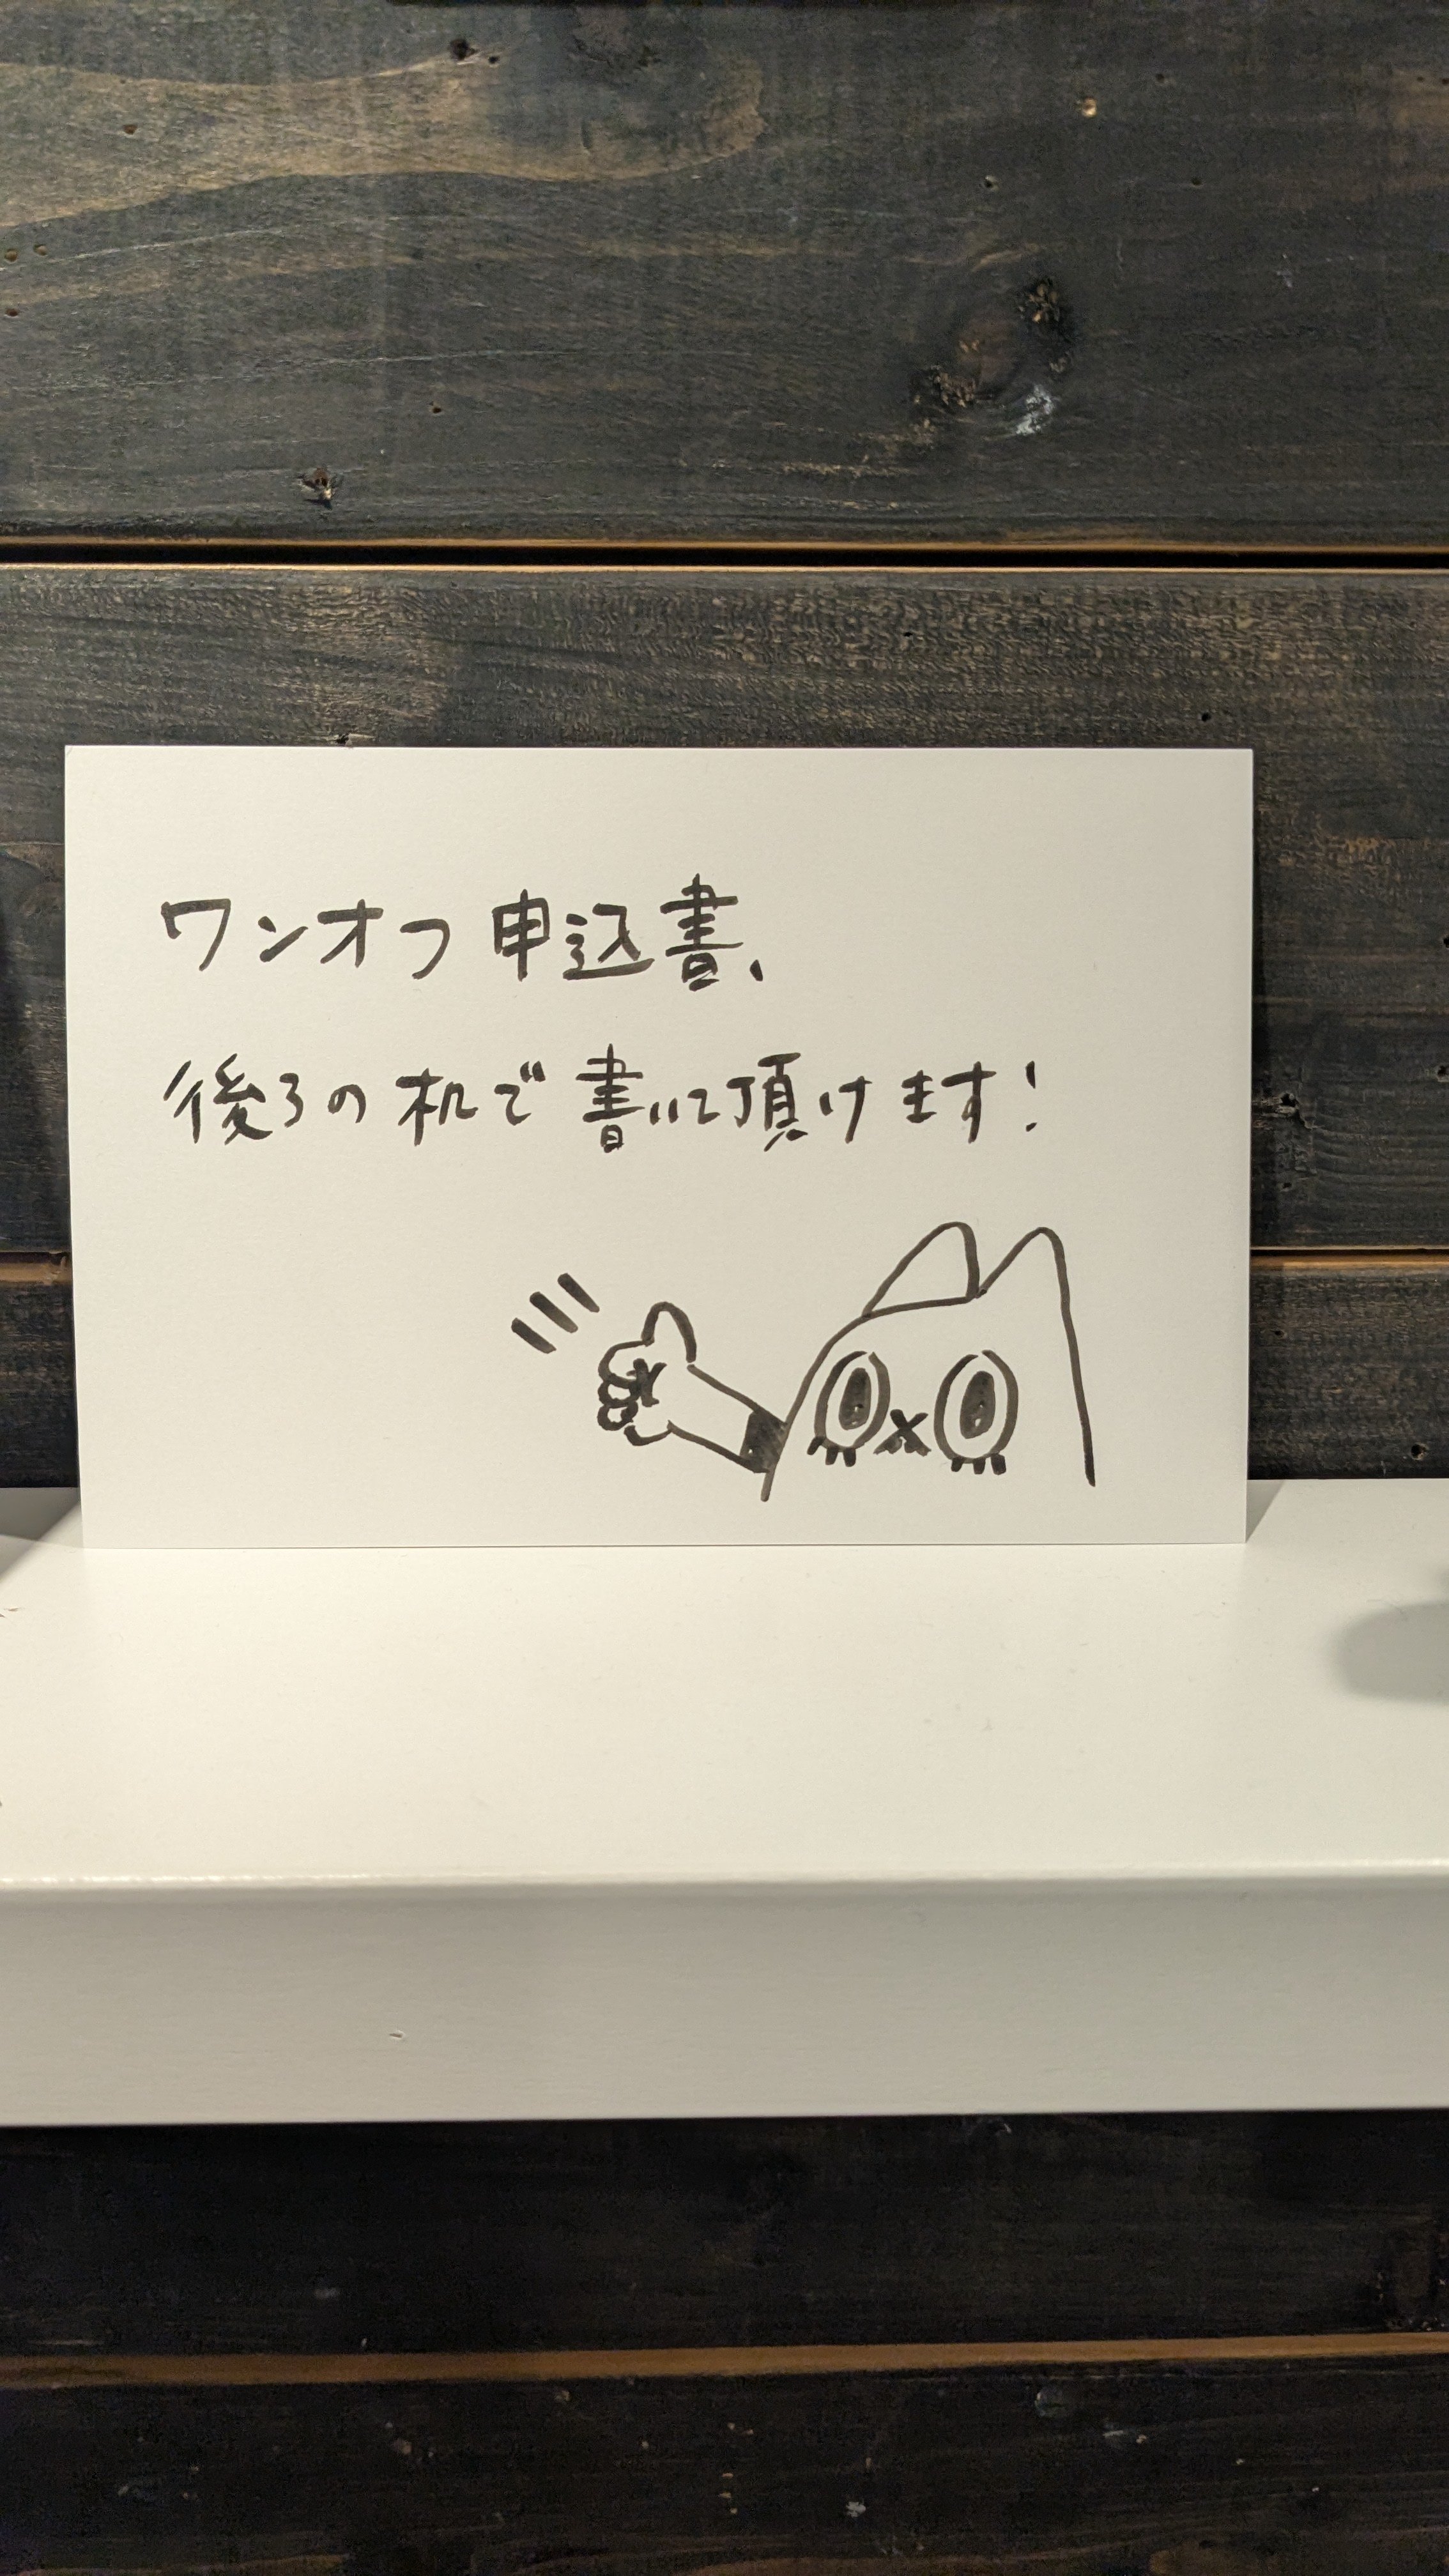 ワンオフ申込書、
後ろの机で書いて頂けます!